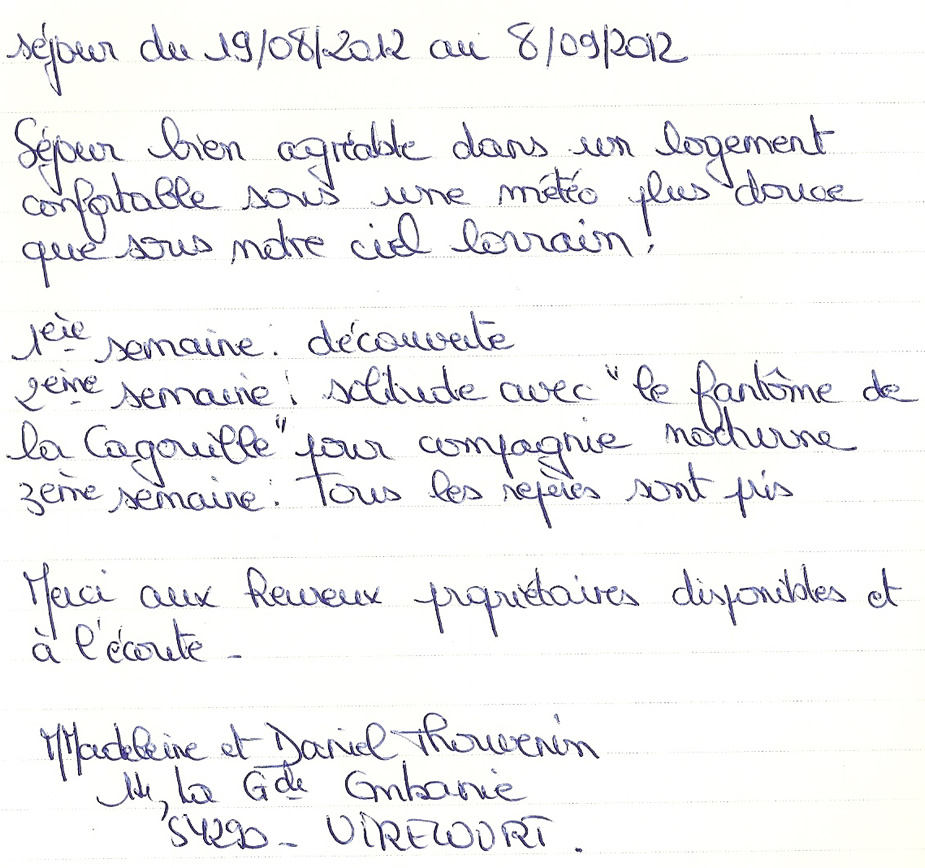 séjour du 19/08/2012 au 8/09/2012
Séjour bien agréable dans un logement
confortable sous une météo plus douce
que sous notre ciel lorrain !
1eie semaine : découverte
2eme semaine : solitude avec "le fantôme de
la Cagouille" pour compagnie nocturne
3eme semaine : Tous les repères sont pris
Merci aux heureux propriétaires disponibles et
à l'écoute -
Madeleine et Daniel Thouvenin
14, la Gde
54290 - VIRECOURT.